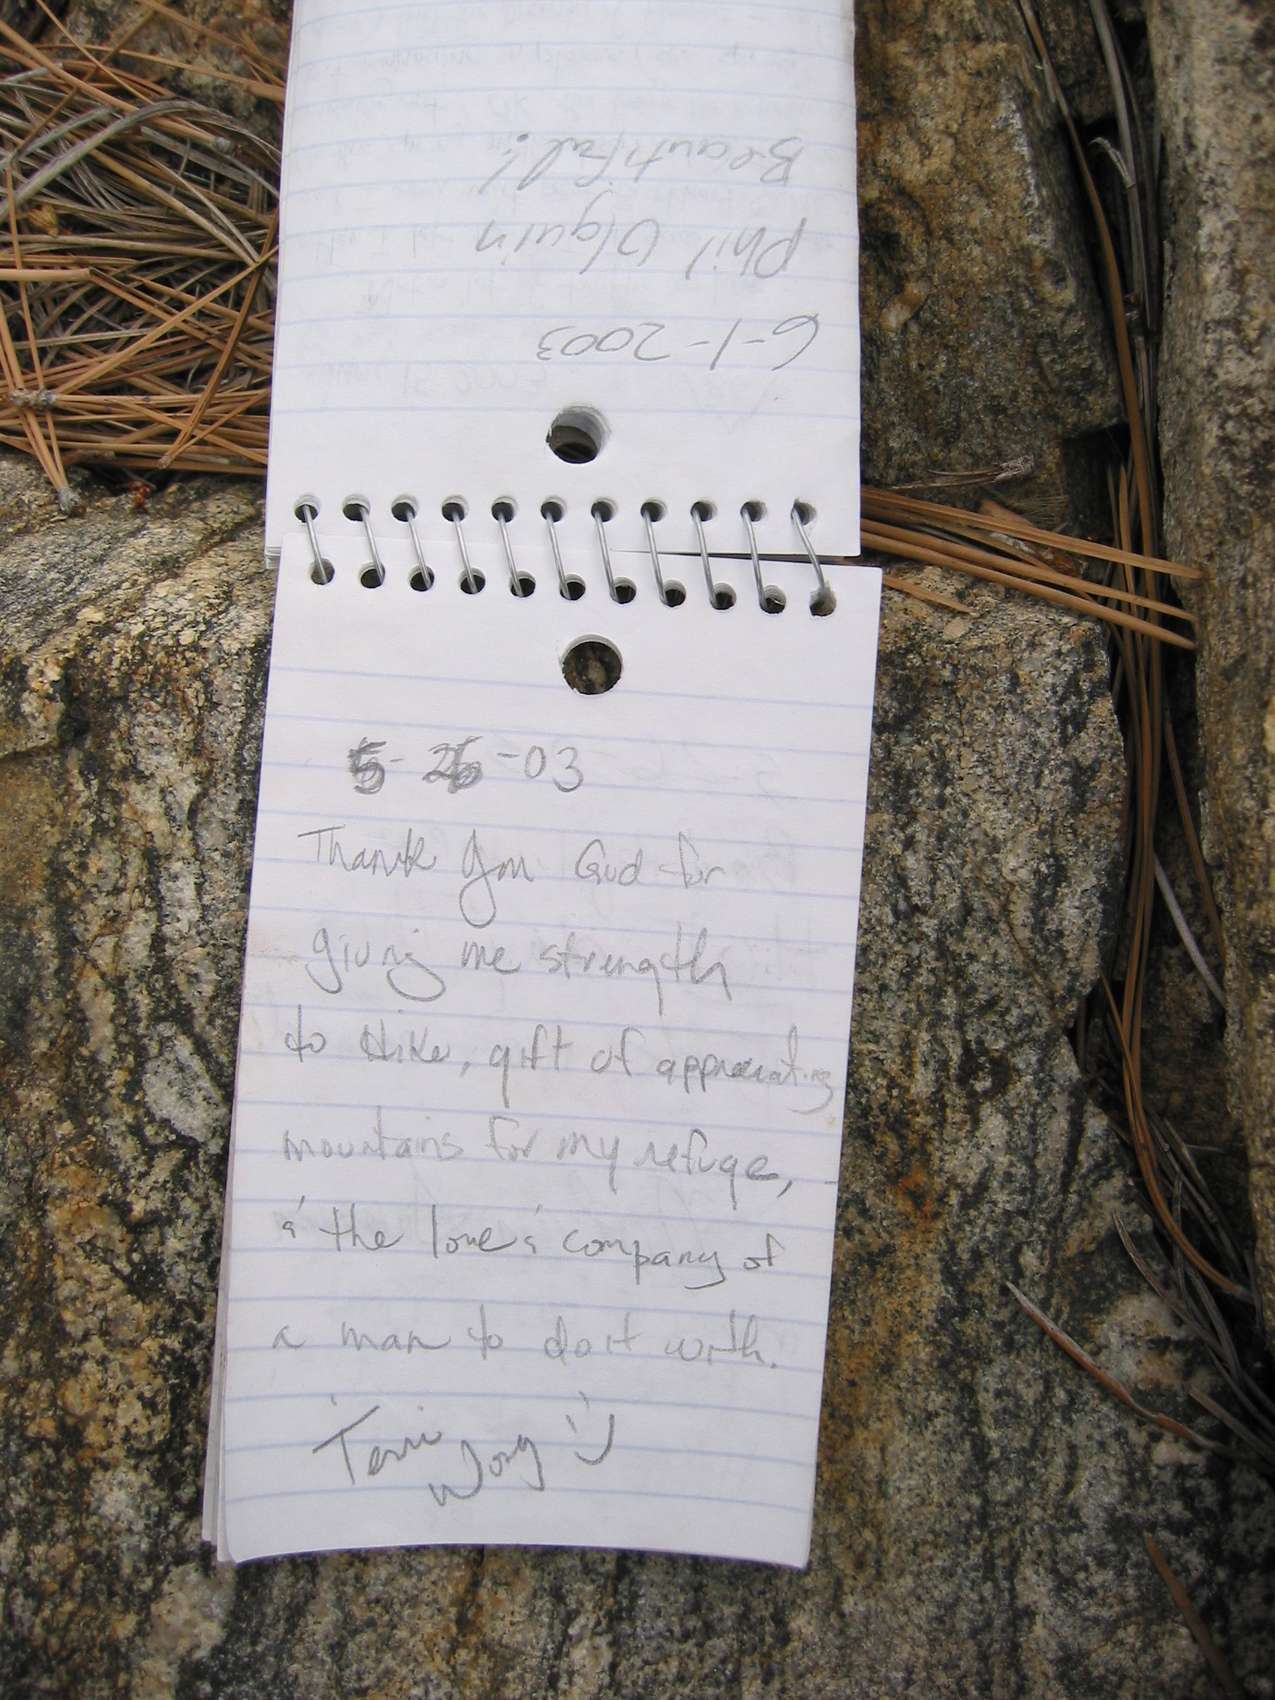 6-1-2003
Phil Olguin
Beautiful!
5-26-03
Thank you God for
giving me strength
to Hike, gift of appreciating
mountains for my refuge,
& the love & company of
a man to do it with.
Terri
Wong :)